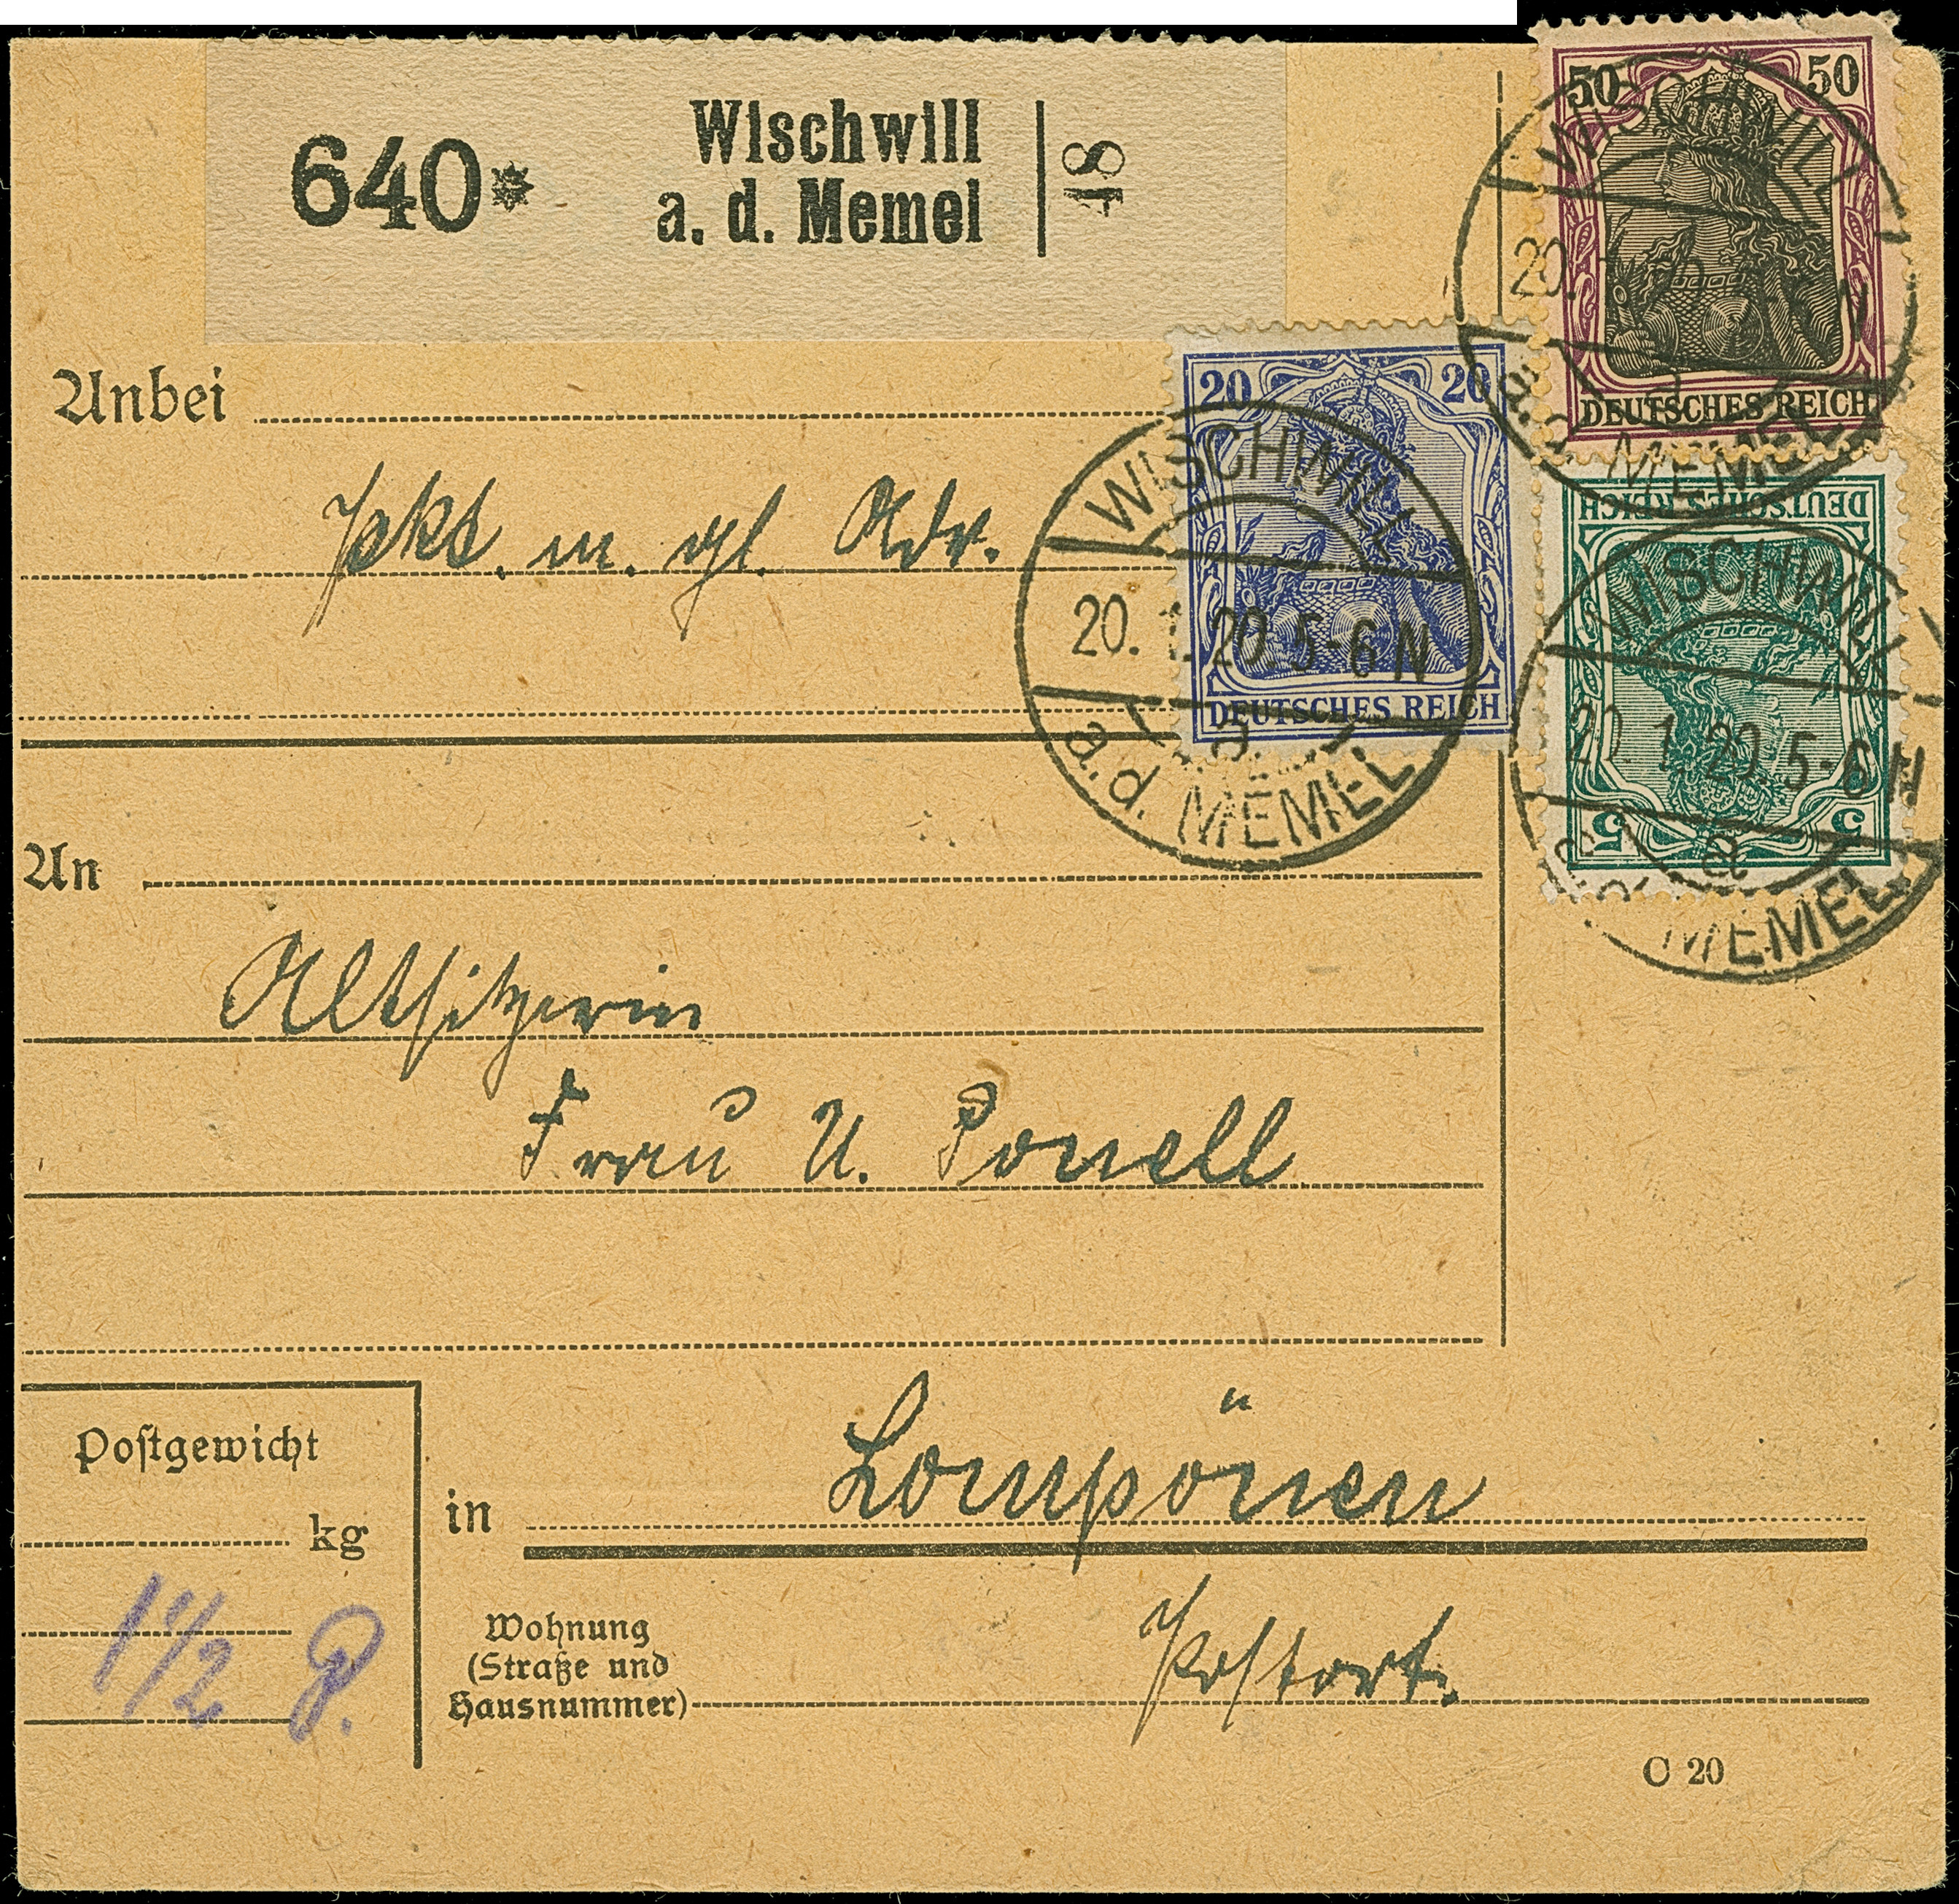 640* Wischwill
a. d. Memel
48
50 50
DEUTSCHES REICH
WISCHWILL
20. 5-6 N
a.d. MEMEL
Anbei
20 20
DEUTSCHES REICH
WISCHWILL
20. 1. 20. 5-6 N
a
a.d. MEMEL
Pkt. m. gl. Adr.
DEUTSCHES REICH
5 5
WISCHWILL
20. 1. 20. 5-6 N
a
MEMEL
An
Altsitzerin
Frau U. Ponell
Postgewicht
kg
1 1/2 P.
in Lompönen
Wohnung
(Straße und
Hausnummer)
Postort.
C 20